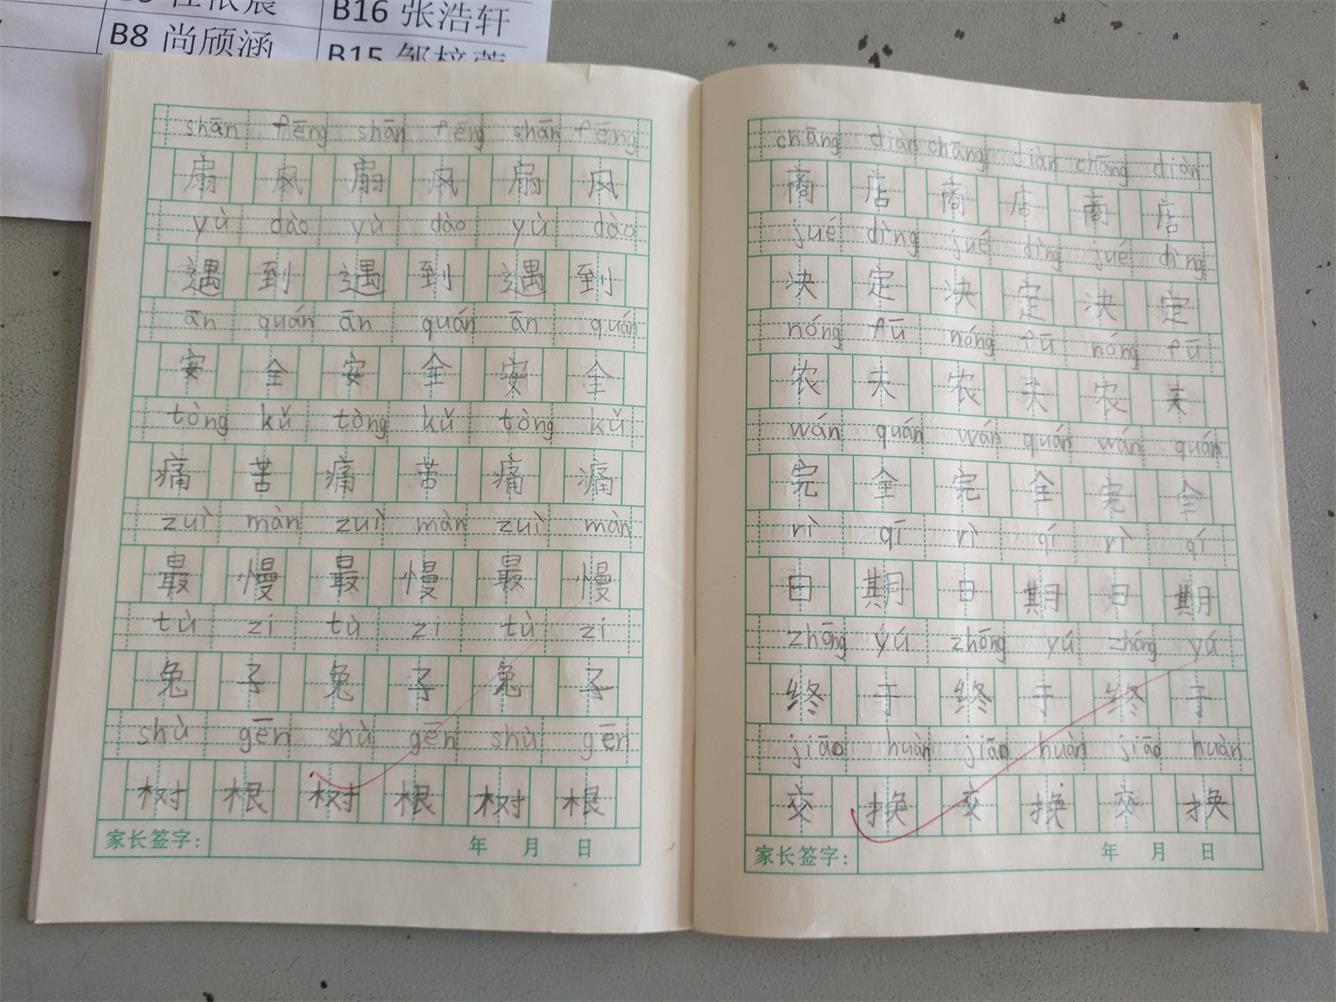 B16 张浩轩
B8 尚颀涵
B15
shān fēng shān fēng shān fēng
扇 风 扇 风 扇 风
yù dào yù dào yù dào
遇 到 遇 到 遇 到
ān quán ān quán ān quán
安 全 安 全 安 全
tòng kǔ tòng kǔ tòng kǔ
痛 苦 痛 苦 痛 痛
zuì màn zuì màn zuì màn
最 慢 最 慢 最 慢
tù zi tù zi tù zi
兔 子 兔 子 兔 子
shù gēn shù gēn shù gēn
树 根 树 根 树 根
家长签字: 年 月 日
chāng diàn chāng diàn chāng diàn
商 店 商 店 商 店
jué dìng jué dìng jué dìng
决 定 决 定 决 定
nóng fū nóng fū nóng fū
农 夫 农 夫 农 夫
wán quán wán quán wán quán
完 全 完 全 完 全
rì qī rì qí rì qí
日 期 日 期 日 期
zhōng yú zhōng yú zhōng yú
终 于 终 于 终 于
jiāo huàn jiāo huàn jiāo huàn
交 换 交 换 交 换
家长签字: 年 月 日